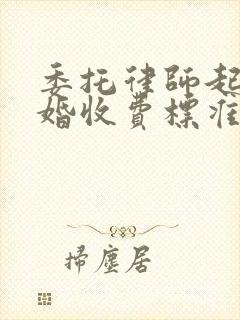 委托律師起
婚收費標准
掃塵居